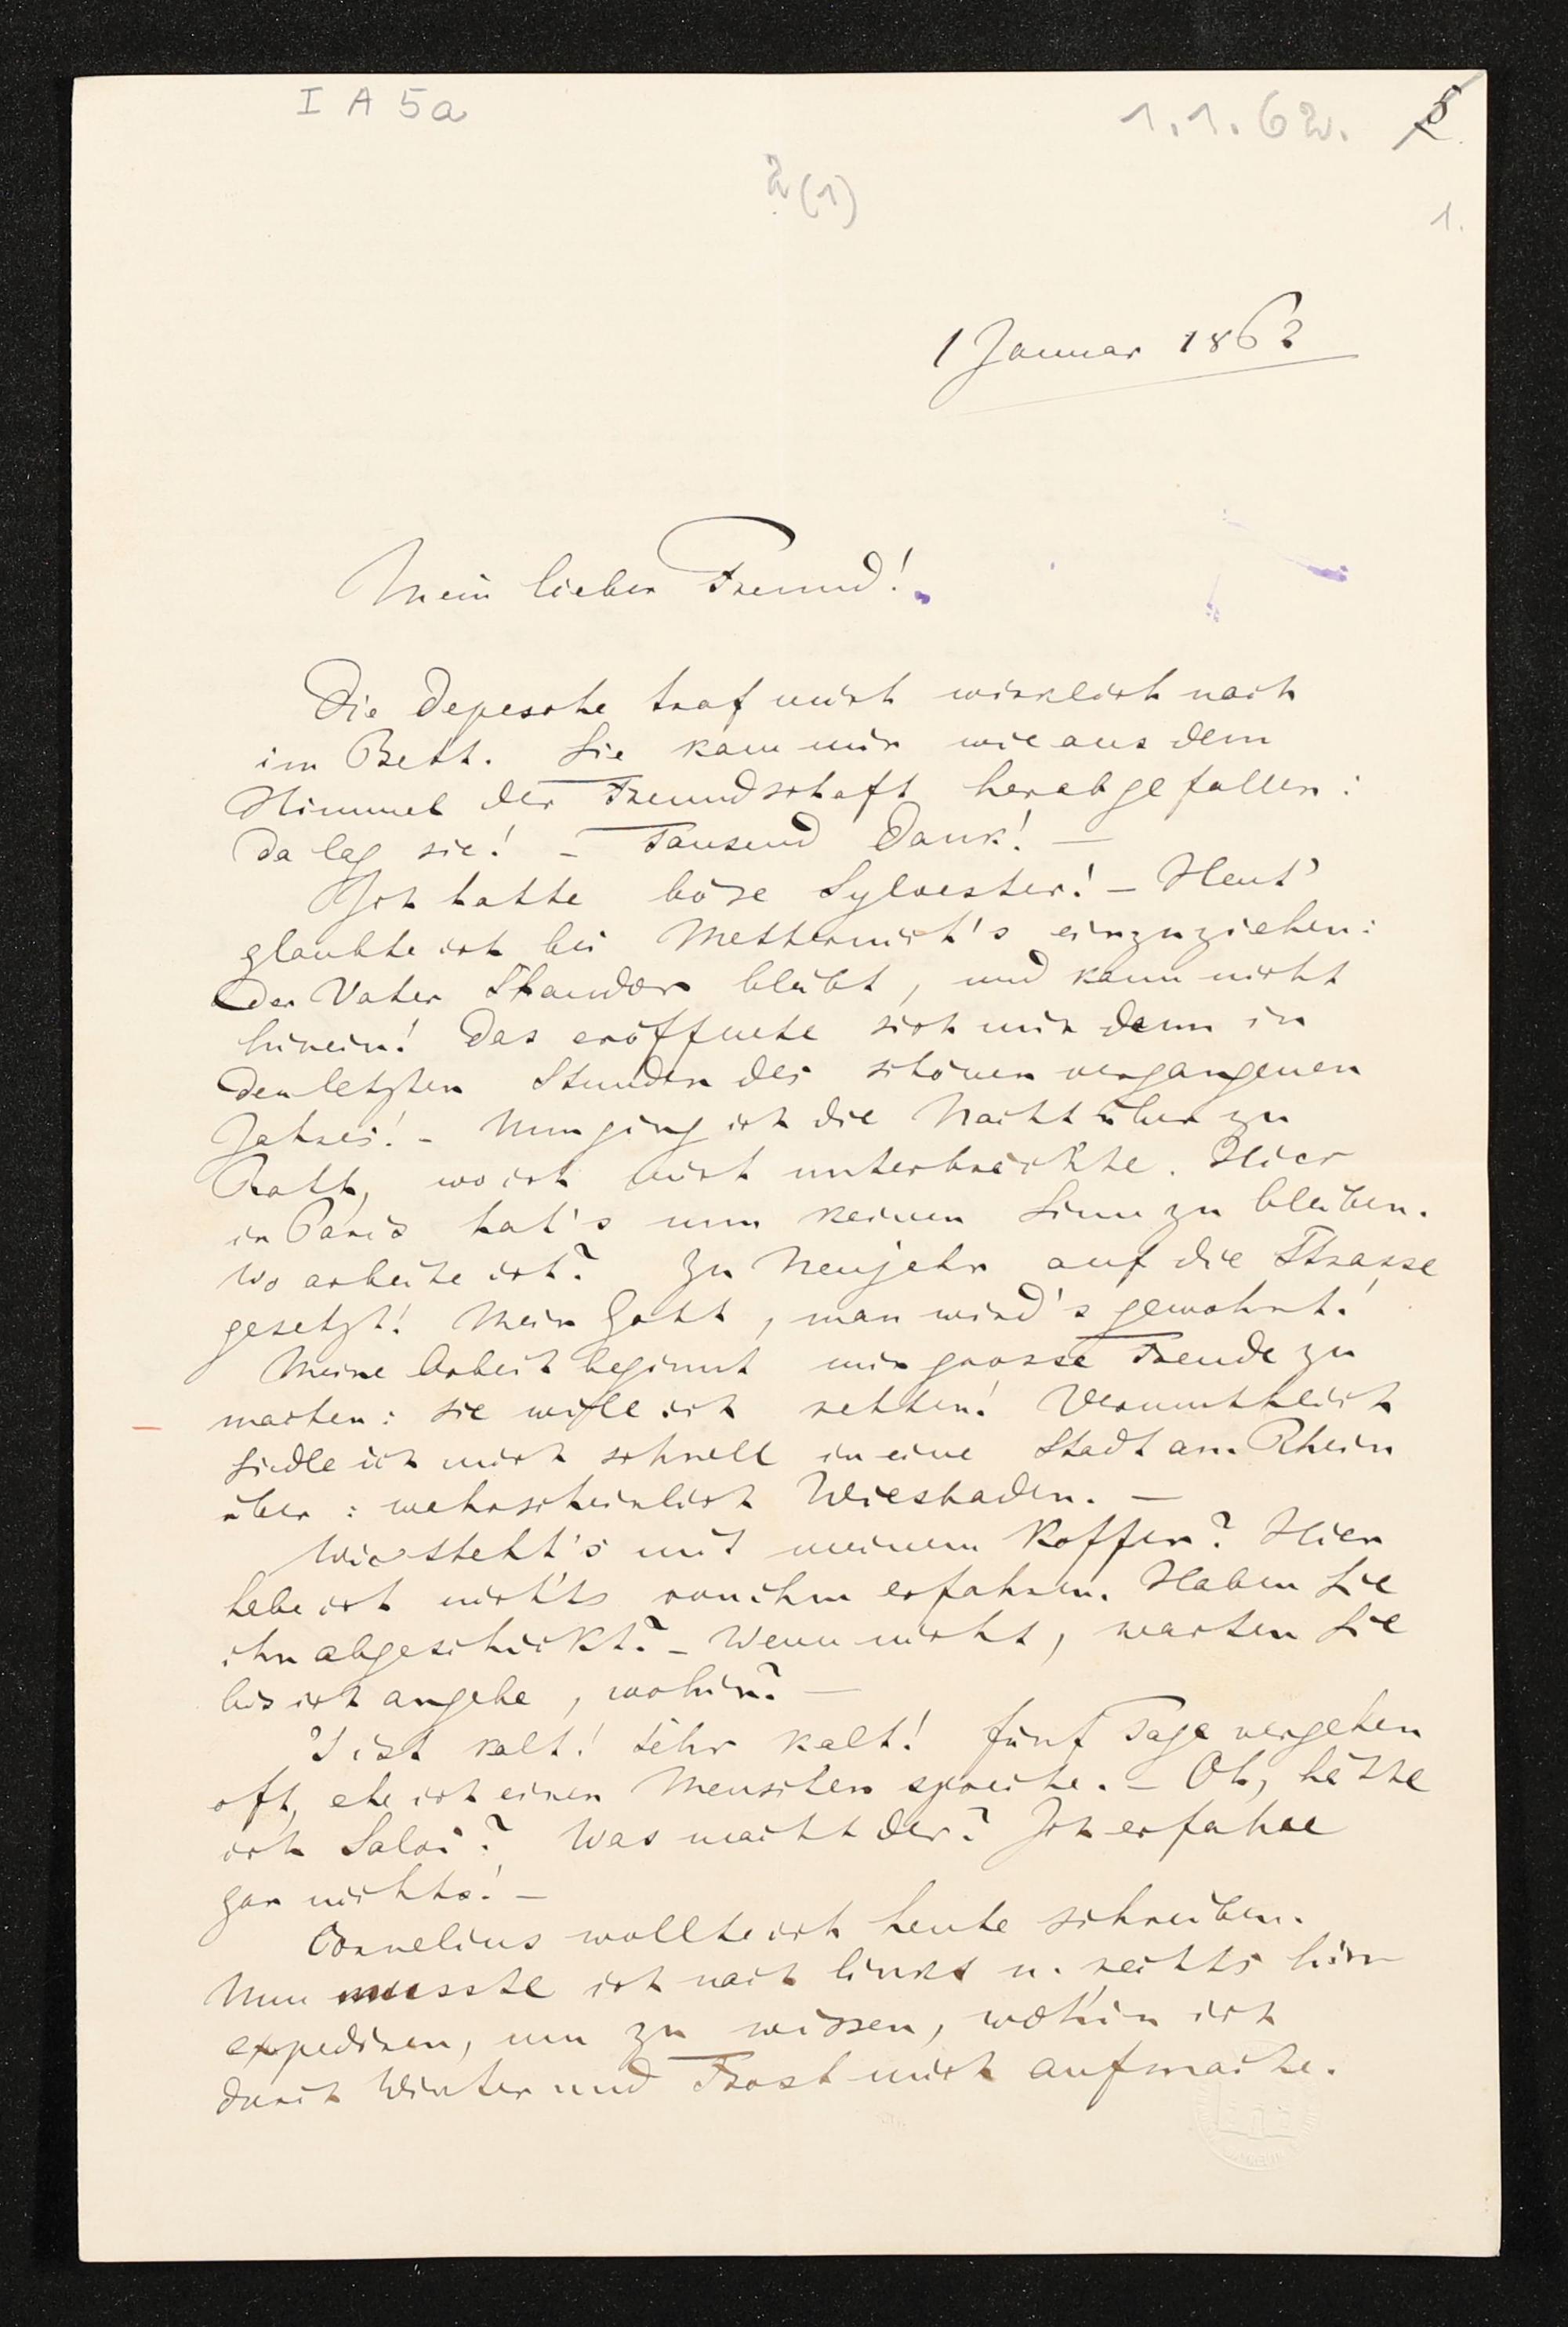 I A 5a
1.1.62.
2 (1)
1.
1 Januar 1862
Mein lieber Freund!
Die Depesche traf mich wirklich noch
im Bett. Sie kam mir wie aus dem
Himmel der Freundschaft herabgefallen:
da lag sie! – Tausend Dank! –
Ich hatte böse Sylvester! – Heut'
glaubte ich bei Metternich's einzuziehen:
der Vater Shandor bleibt, und kann nicht
hinein! Das eröffnete sich mir denn in
den letzten Stunden des schönen vergangenen
Jahres! – Nun ging ich die Nacht über zu
Rath, wo ich mich unterbrächte. Hier
in Paris hat's nun keinen Sinn zu bleiben.
Wo arbeite ich? Zu Neujahr auf die Strasse
gesetzt! Mein Gott, man wird's gewohnt!
Meine Arbeit beginnt mir grosse Freude zu
machen: sie will ich retten! Vermuthlich
siedle ich mich schnell in eine Stadt am Rhein
über: wahrscheinlich Wiesbaden. –
Wie steht's mit meinem Koffer? Hier
habe ich nichts von ihm erfahren. Haben Sie
ihn abgeschickt? – Wenn nicht, warten Sie
bis ich angebe, wohin? –
's ist kalt! Sehr kalt! Fünf Tage vergehen
oft, ehe ich einen Menschen spreche. – Oh, hätte
ich Salvi? Was macht der? Ich erfahre
gar nichts! –
Cornelius wollte ich heute schreiben.
Nun musste ich nach links u. rechts hin
expediren, um zu wissen, wohin ich
durch Winter und Frost mich aufmache.